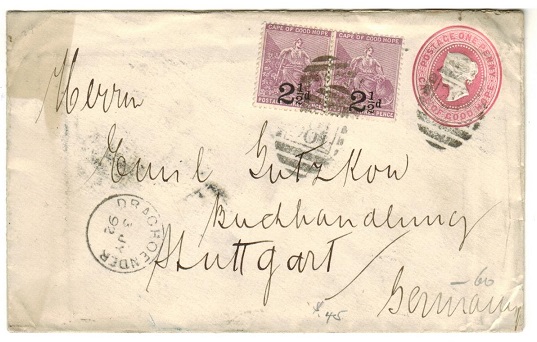 CAPE OF GOOD HOPE
2½d
POSTAGE
CAPE OF GOOD HOPE
2½d
PENCE
POSTAGE ONE PENNY
CAPE OF GOOD HOPE
Herrn
Emil Gutzkow
Buchhandlung
Stuttgart
Germany
DRAGHOENDER
3 JY
92
60
$.45